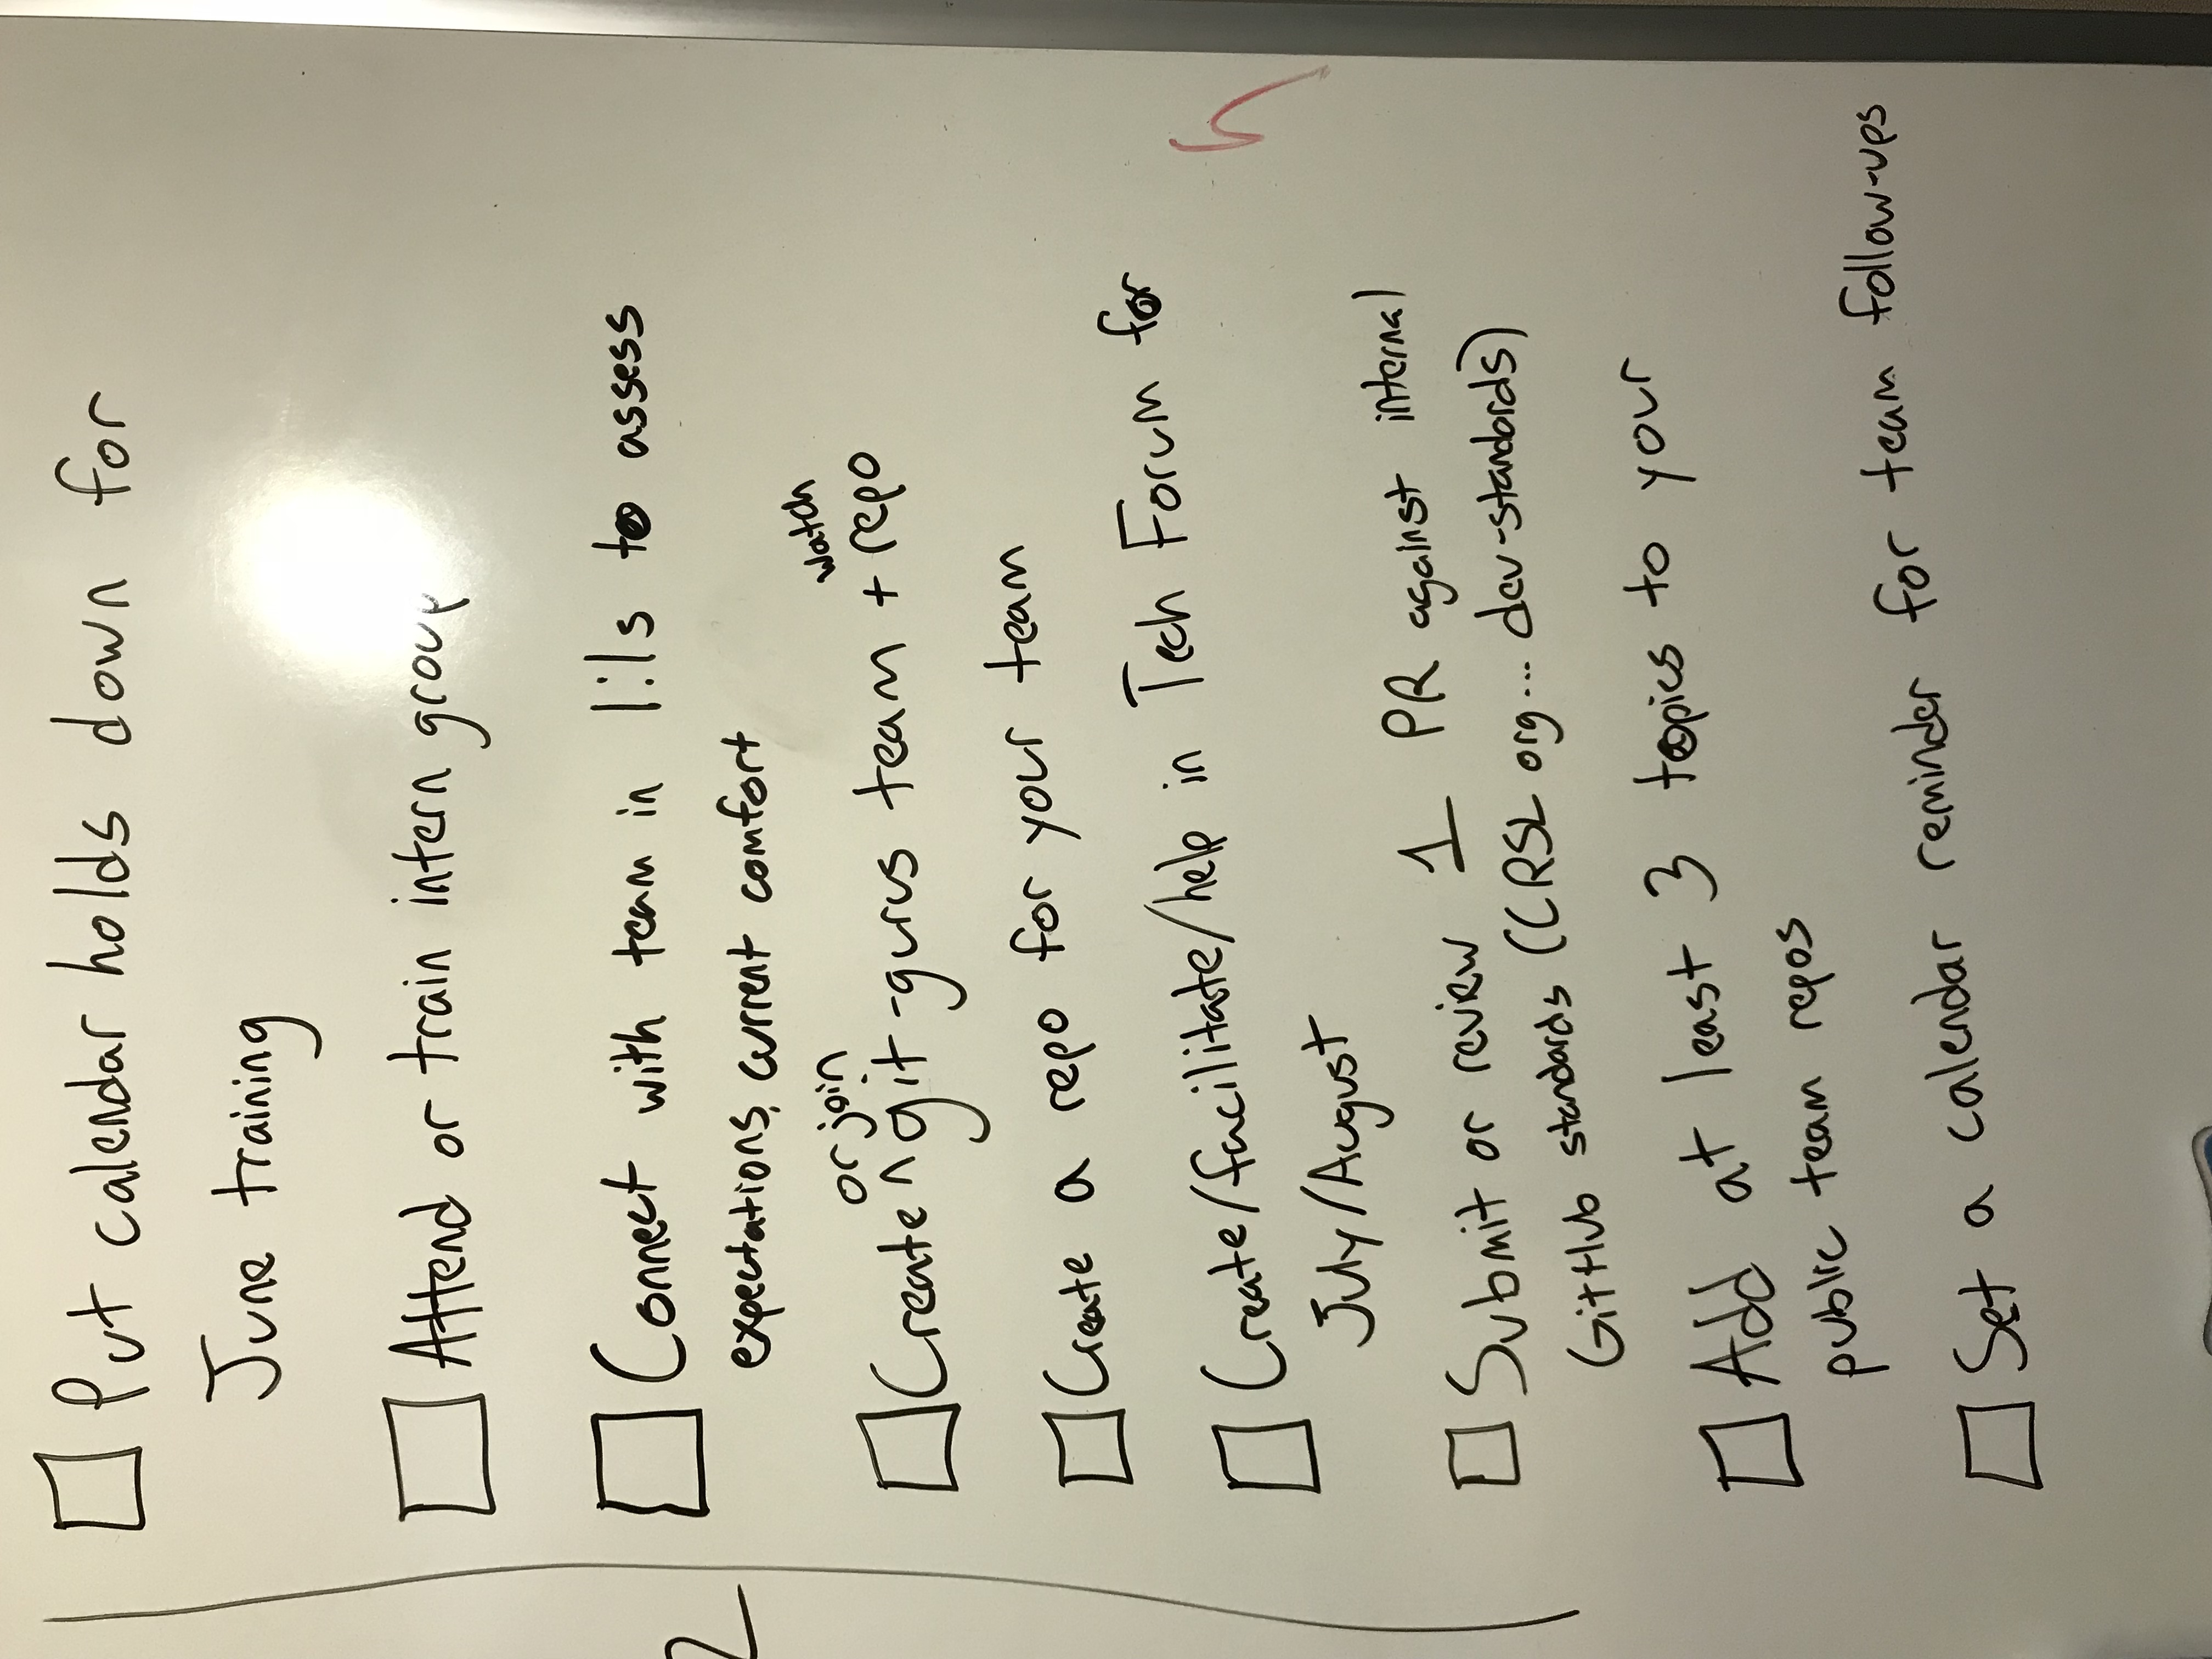 Put calendar holds down for
June training
Attend or train intern group
Connect with team in 1:1s to assess
expectations, current comfort
or join
watch
Create ^ git-gurus team + repo
Create a repo for your team
Create/facilitate/help in Tech Forum for
July/August
Submit or review 1 PR against internal
GitHub standards (CRSL org... dev-standards)
Add at least 3 topics to your
public team repos
Set a calendar reminder for team follow-ups
2